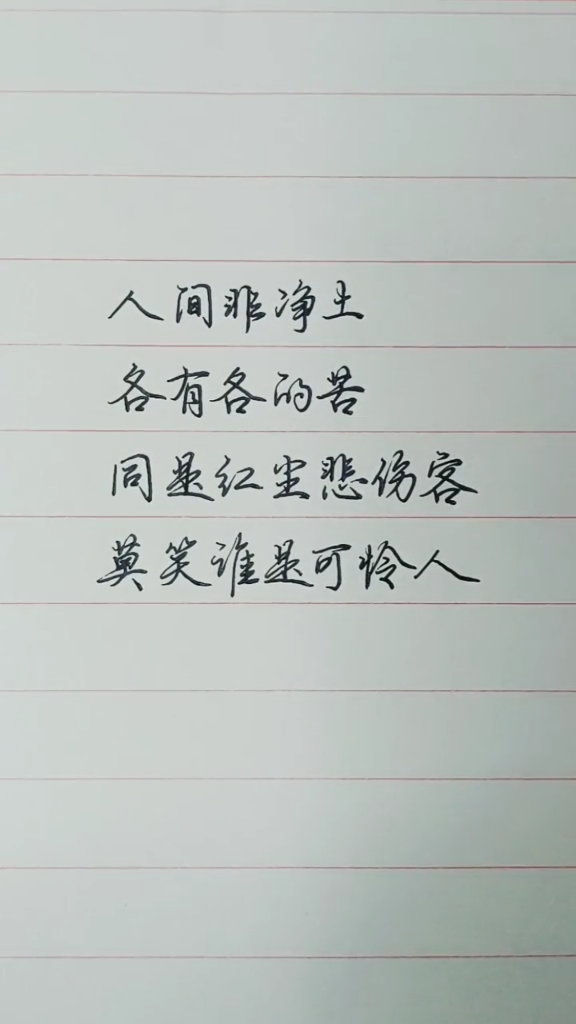 人间非净土
各有各的苦
同是红尘悲伤客
莫笑谁是可怜人